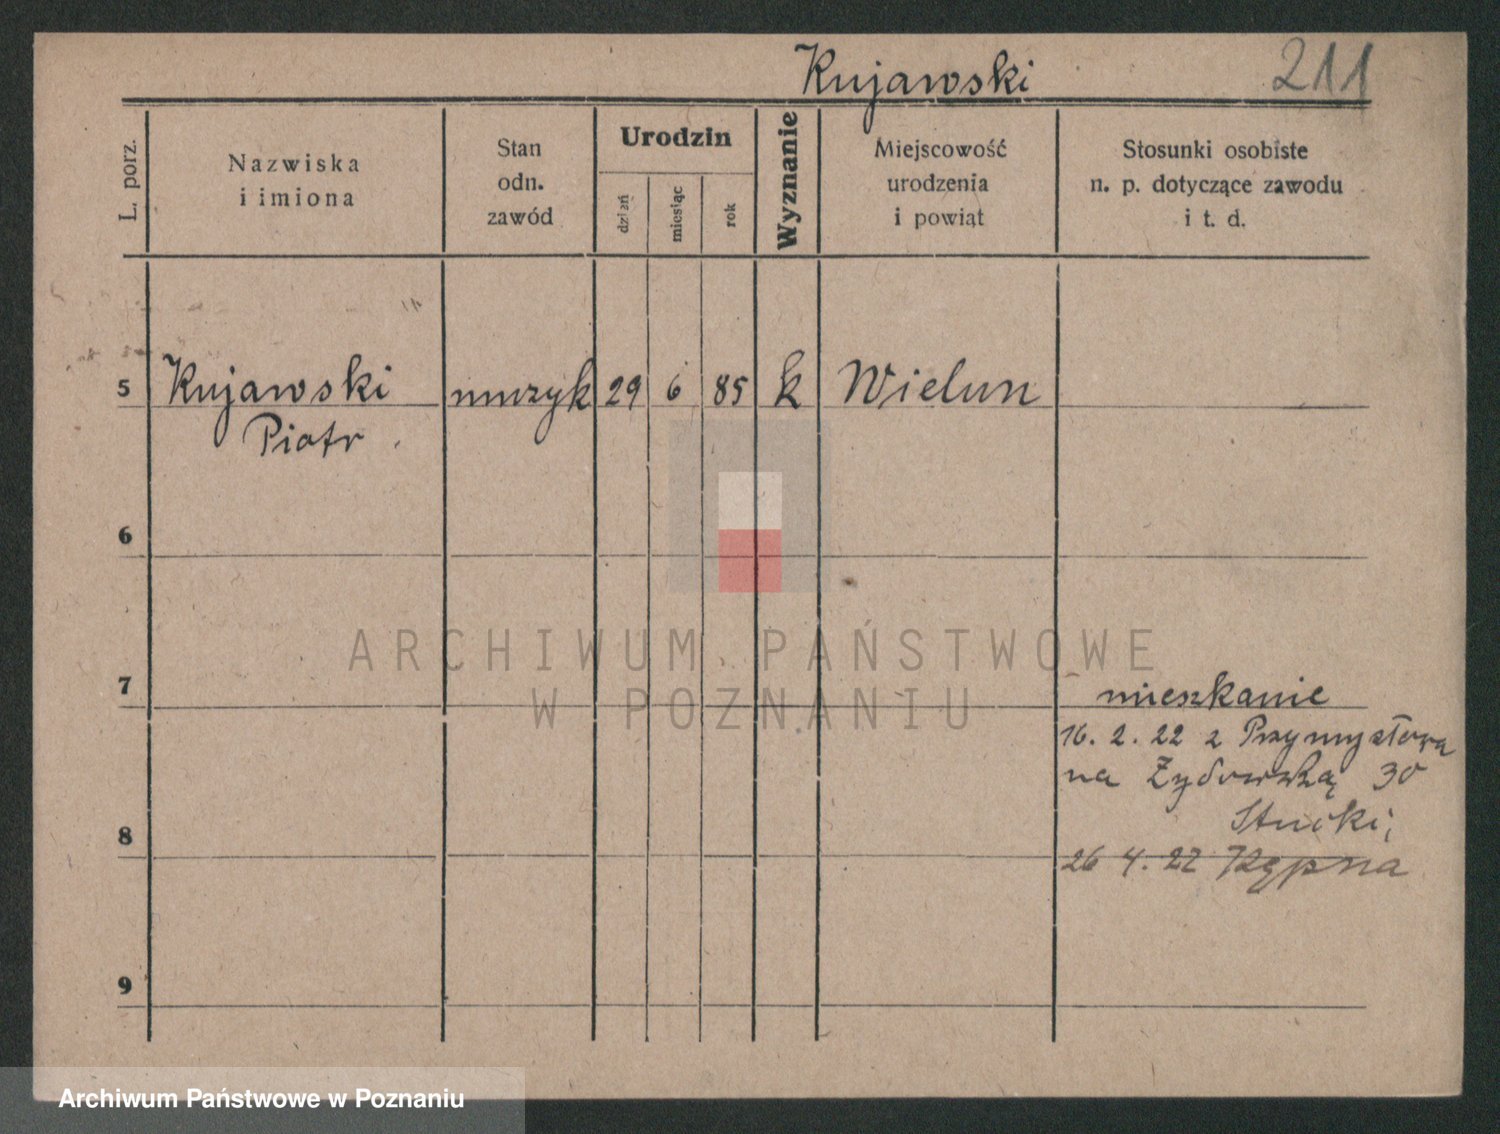 Kujawski 211
L. porz.
Nazwiska
i imiona
Stan
odn.
zawód
Urodzin
dzień
miesiąc
rok
Wyznanie
Miejscowość
urodzenia
i powiat
Stosunki osobiste
n. p. dotyczące zawodu
i t. d.
5 Kujawski muzyk 29 6 85 k Wielun
Piotr
6
7
mieszkanie
16. 2. 22 z Przymysłowa
na Żydowską 30
8
26 4. 22 Kępna
9
ARCHIWUM PAŃSTWOWE
W POZNANIU
Archiwum Państwowe w Poznaniu